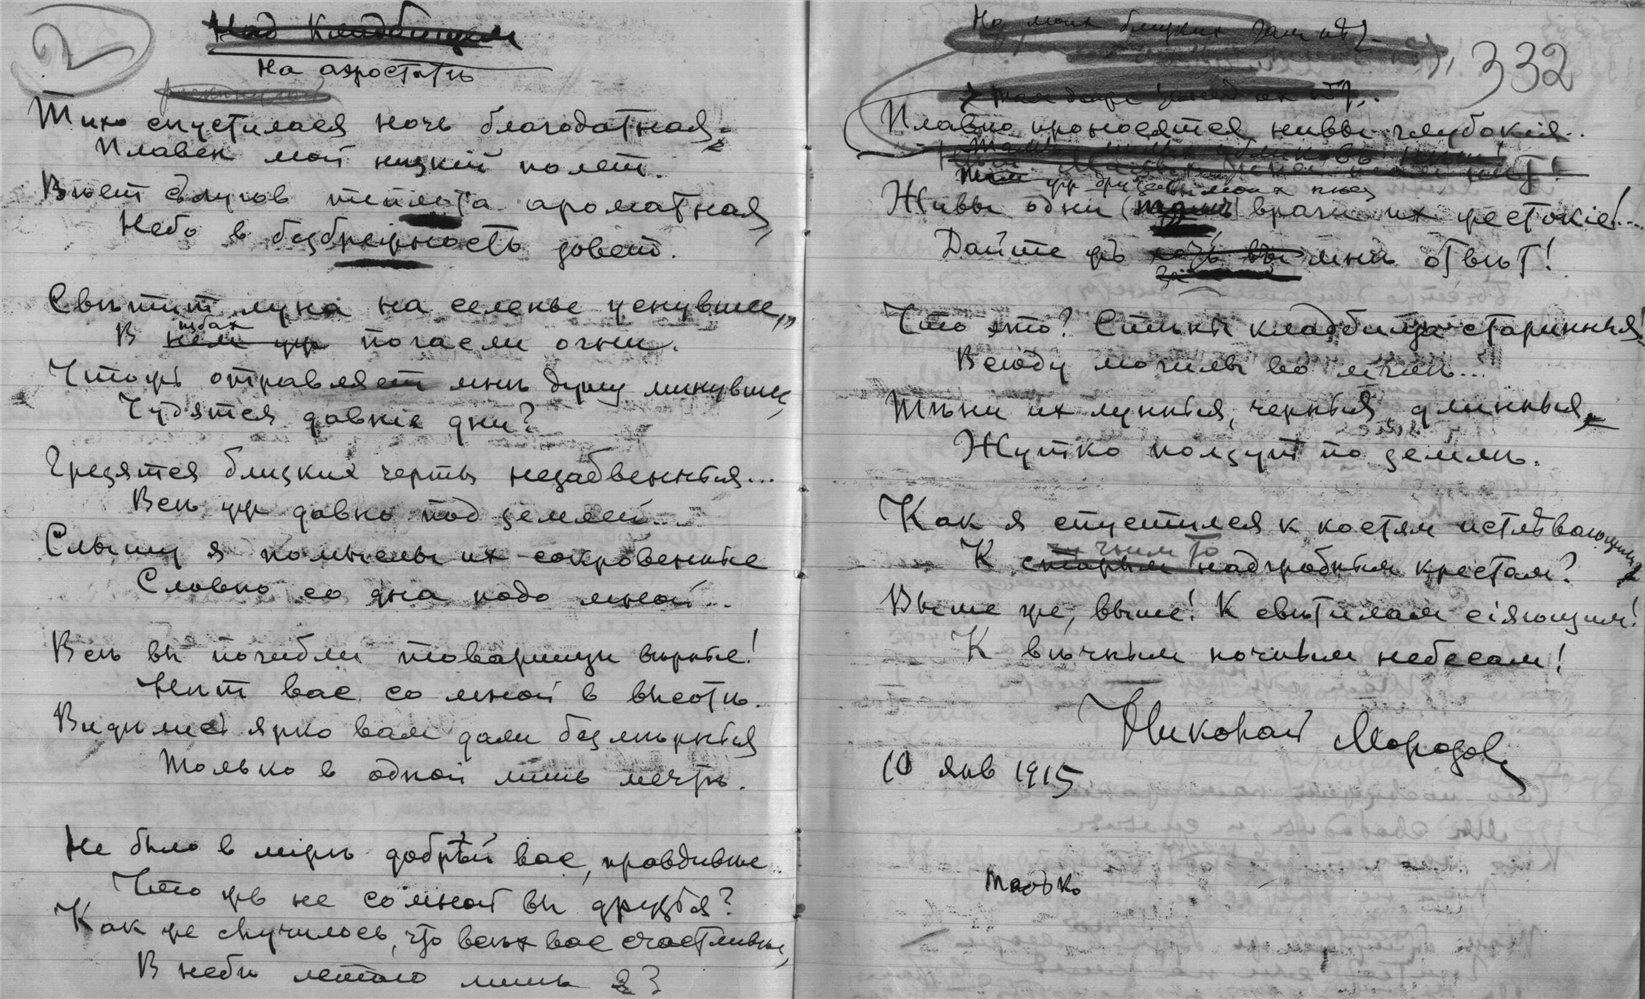 2
Над Кладбищем
на аэростатѣ
Тихо спустилася ночь благодатная,
Плавен мой низкий полет.
Вѣет с лугов теплота ароматная,
Небо в безбрежность зовет.
Свѣтит луна на селенье уснувшее,
В избах погасли огни.
Что жъ отравляет мнѣ душу минувшее,
Чудятся давнiе дни?
Грезятся близких черты незабвенныя...
Всѣ уж давно под землей...
Слышу я помыслы их сокровенные
Словно со дна надо мной...
Всѣ вы погибли товарищи вѣрные!
Нѣт вас со мной в высотѣ.
Виделись ярко вам дали безмѣрныя
Только в одной лишь мечтѣ.
Не было в мiрѣ добрѣй вас, правдивые
Что жъ не со мной вы друзья?
Как же случилось, что всѣх вас счастливые,
В небѣ летаю лишь я?
332
Плавно проносятся нивы глубокiя..
уж друзей моих нѣт
Живы одни враги их жестокiе!...
Дайте жъ мнѣ отвѣт!
Что это? Стѣны кладбища старинныя!
Всюду могилы во мглѣ...
Тѣни их лунныя, черныя, длинныя
Жутко ползут по землѣ.
Как я спустился к костям истлѣвающим
К чьим то надгробным крестам?
Выше же, выше! К свѣтилам сiяющим!
К вѣчным ночным небесам!
Николай Морозов
10 янв 1915
только